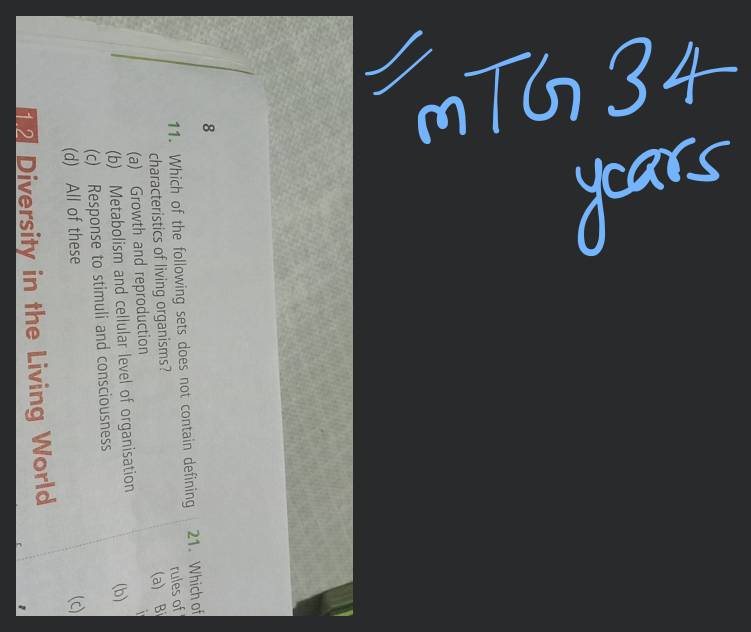 8
11. Which of the following sets does not contain defining
characteristics of living organisms?
(a) Growth and reproduction
(b) Metabolism and cellular level of organisation
(c) Response to stimuli and consciousness
(d) All of these
1.2 Diversity in the Living World
21. Which of
rules of
(a) Bi
(b)
(c)
mTG 34
years